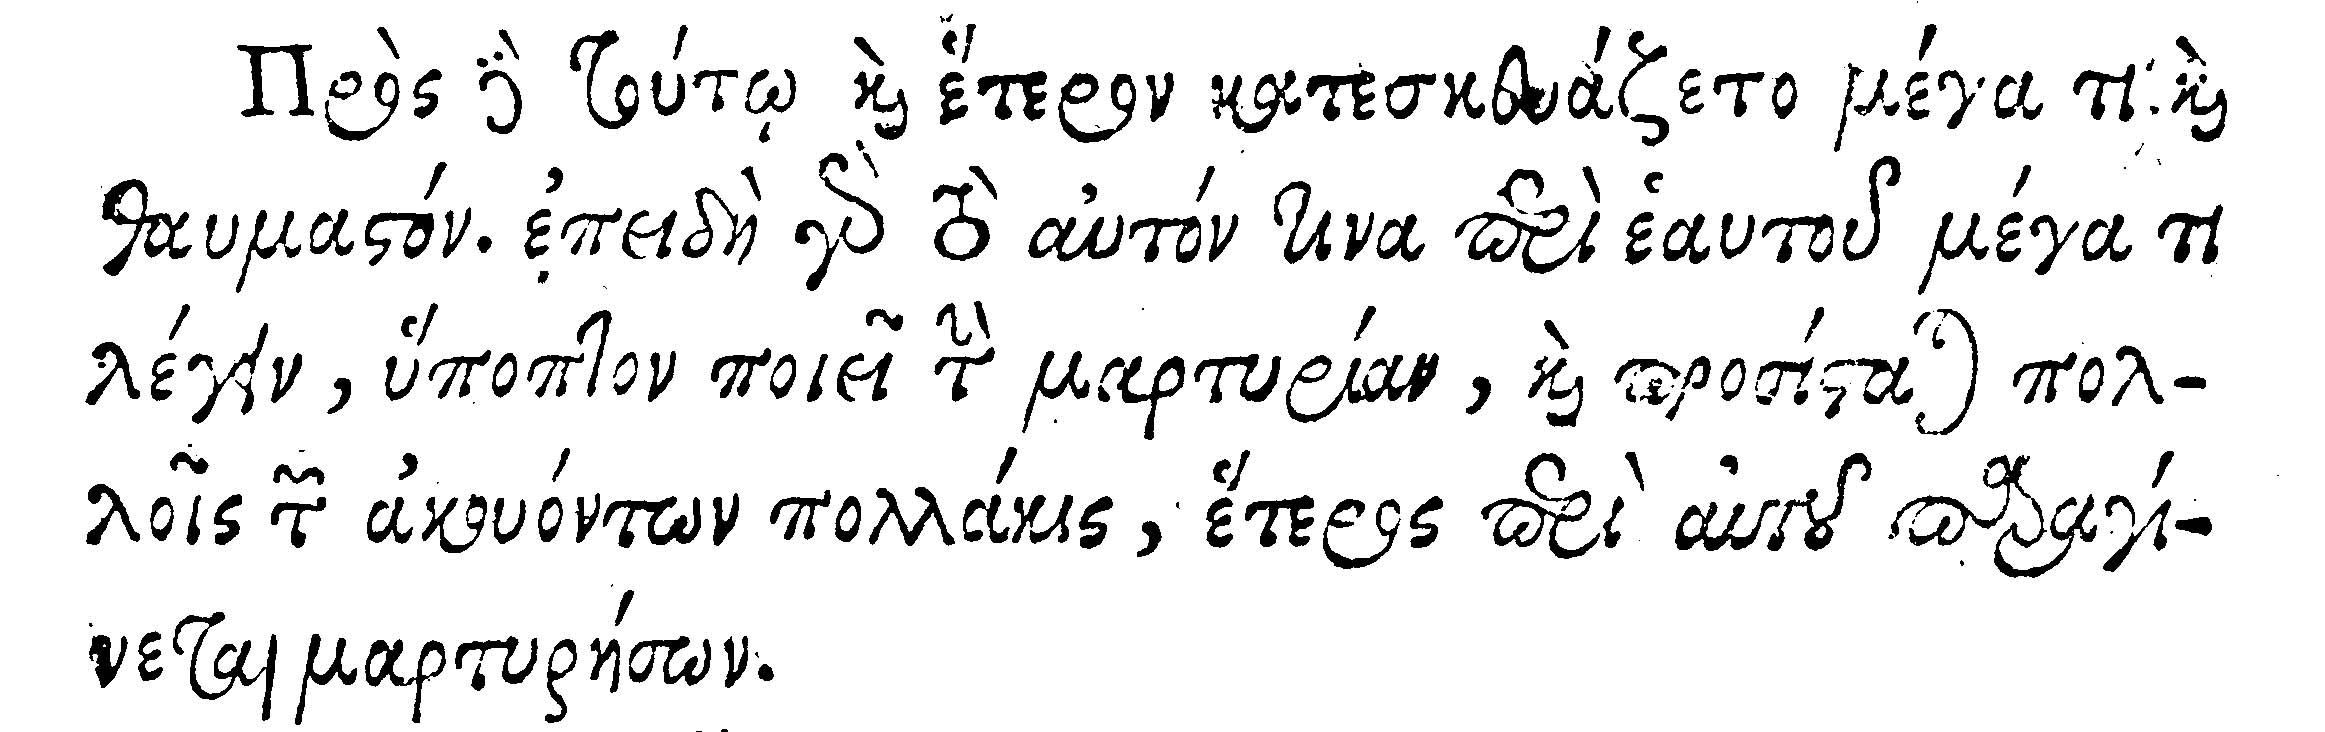 Πρὸς δὲ τούτῳ καὶ ἕτερον κατεσκευάζετο μέγα τι καὶ
θαυμαστόν. ἐπειδὴ γὰρ τὸ αὐτόν τινα περὶ ἑαυτοῦ μέγα τι
λέγειν, ὕποπτον ποιεῖ τὴν μαρτυρίαν, καὶ προσίσταται πολ-
λοῖς τῶν ἀκουόντων πολλάκις, ἕτερος περὶ αὐτοῦ παραγί-
νεται μαρτυρήσων.